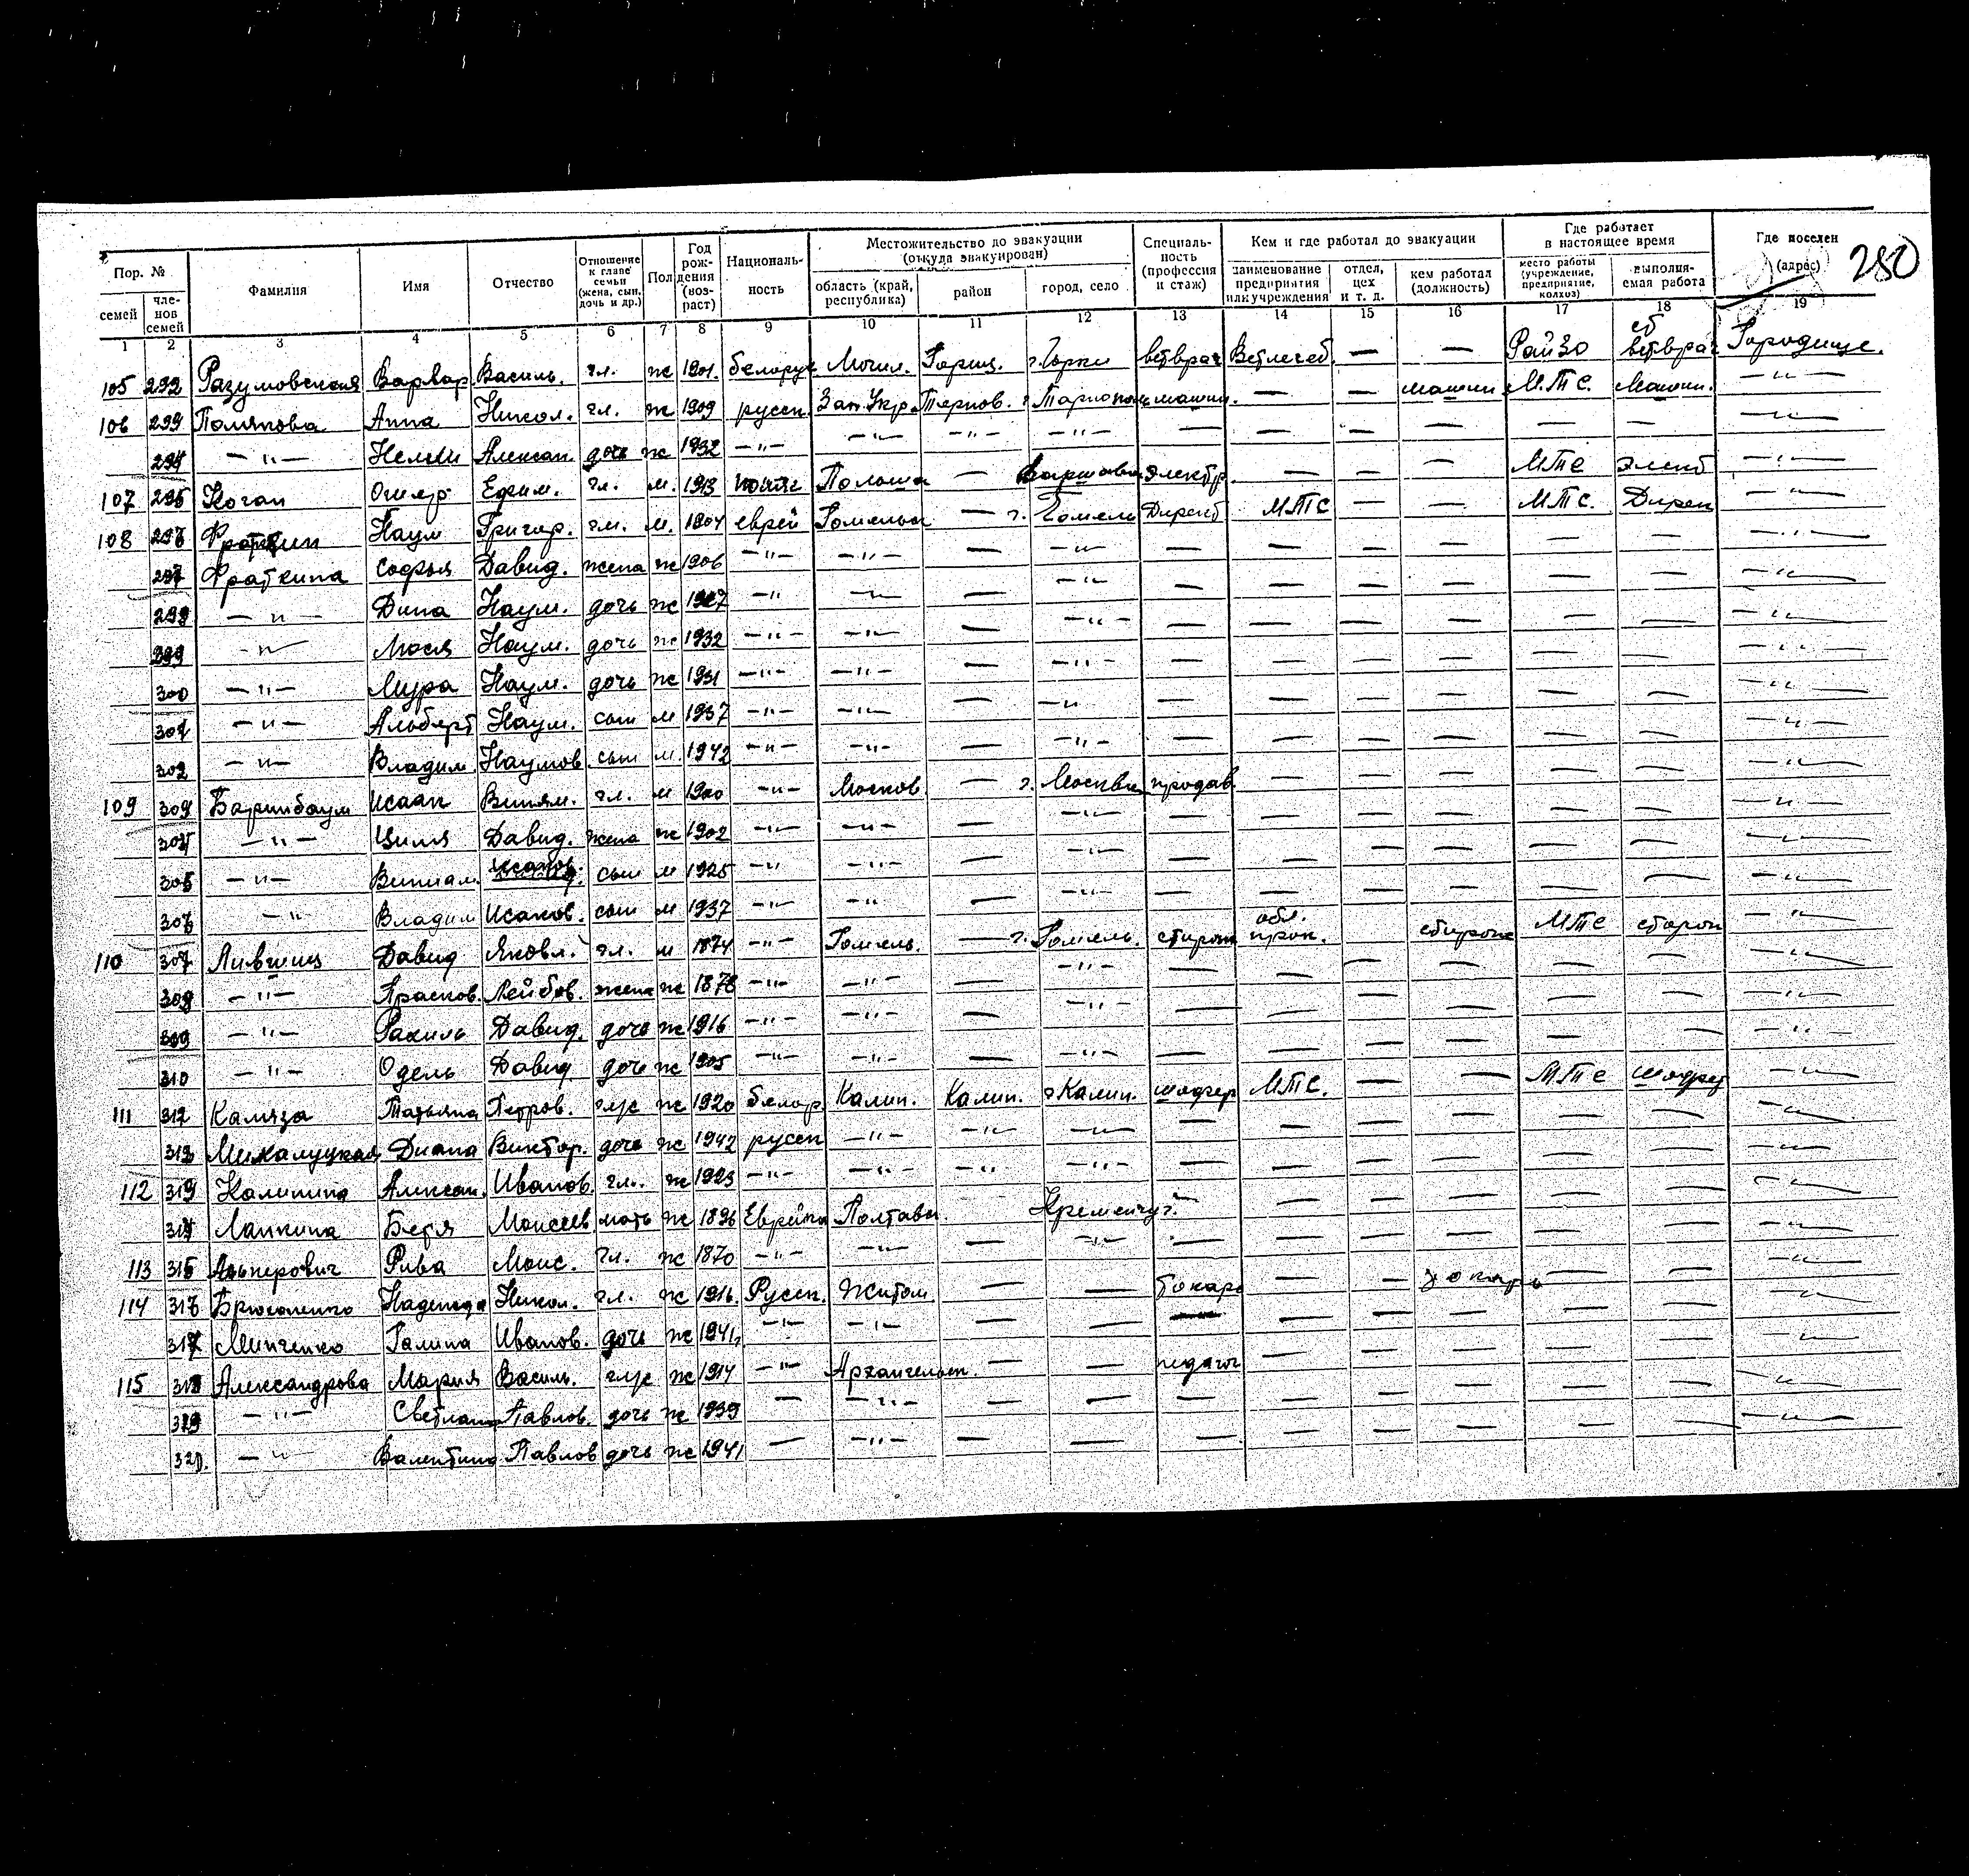 280
Пор. № Фамилия Имя Отчество Отношение к главе семьи (жена, сын, дочь и др.) Пол Год рождения (возраст) Национальность Местожительство до эвакуации (откуда эвакуирован) Специальность (профессия и стаж) Кем и где работал до эвакуации Где работает в настоящее время Где поселен (адрес)
семей членов семей область (край, республика) район город, село наименование предприятия или учреждения отдел, цех и т. д. кем работал (должность) место работы (учреждение, предприятие, колхоз) выполняемая работа
1 2 3 4 5 6 7 8 9 10 11 12 13 14 15 16 17 18 19
105 Разумовская Варвар Василь. гл. ж 1901 белорус Могил. Горец. г. Горки ветврач Ветлечеб. — — РайЗО ветврач Городище.
106 Полякова Анна Никол. гл. ж 1909 русск. Зап. Укр. Тернов. машин. — — машин МТС. Машин. —"—
—"— Нелли Алексан. дочь ж 1932 —"— —"— —"— —"— — — — — — — —"—
107 Коган Ефим. гл. м. 1913 Польша — Варшава электр. — — — МТС —"—
108 Фраткин Наум Григор. гл. м. 1904 еврей Гомельск — г. Гомель Директ МТС — — МТС. Дирек —"—
Фраткина Софья Давид. жена ж 1906 —"— —"— — —"— — — — — — — —"—
—"— Дина Наум. дочь ж 1927 —"— —"— — —"— — — — — — — —"—
—"— Мося Наум. дочь ж 1932 —"— —"— — —"— — — — — — — —"—
300 —"— Мура Наум. дочь ж 1931 —"— —"— — —"— — — — — — — —"—
—"— Альберт Наум. сын м 1937 —"— —"— — —"— — — — — — — —"—
—"— Владим. Наумов. сын м. 1942 —"— —"— — —"— — — — — — — —"—
109 Исаак Виням. гл. м 1900 —"— Москов. — г. Москва продав. — — — — — —"—
—"— Циля Давид. жена ж 1902 —"— —"— — —"— — — — — — — —"—
—"— Виниам. сын м 1925 —"— —"— — —"— — — — — — — —"—
—"— Владим Исаков. сын м 1937 —"— —"— — —"— — — — — — — —"—
110 Лившиц Давид Яковл. гл. м 1874 —"— Гомель. — г. Гомель. сторож сторож МТС сторож —"—
—"— Прасков. Лейбов. жена ж 1878 —"— —"— — —"— — — — — — — —"—
309 —"— Рахиль Давид. дочь ж 1916 —"— —"— — —"— — — — — — — —"—
310 —"— Одель Давид дочь ж 1905 —"— —"— — —"— — — — — — — —"—
111 Татьяна Петров. ж 1920 белор. Калин. Калин. г. Калин. шофер МТС. — — МТС шофер —"—
Михалуцкая Диана Виктор. дочь ж 1942 русск —"— —"— —"— — — — — — — —"—
112 Калинина Алексан. Иванов. гл. ж 1923 —"— —"— —"— —"— — — — — — — —"—
Лапкина Бетя Моисеев мать ж 1896 Еврейка Полтавск. — Кременчуг. — — — — — — —"—
113 Альперович Рива Моис. гл. ж 1870 —"— —"— — —"— — — — — — — —"—
114 Надежда Никол. гл. ж 1916. Русск. Житом — — токарь — — токарь — — —"—
Минченко Галина Иванов. дочь ж 1941 —"— —"— — — — — — — — — —"—
115 Александрова Мария Василь. ж 1914 —"— Архангельск. — — педагог — — — — — —"—
—"— Светлана Павлов. дочь ж 1939 — —"— — — — — — — — — —"—
320. —"— Валентина Павлов дочь ж 1941 — —"— — — — — — — — — —"—